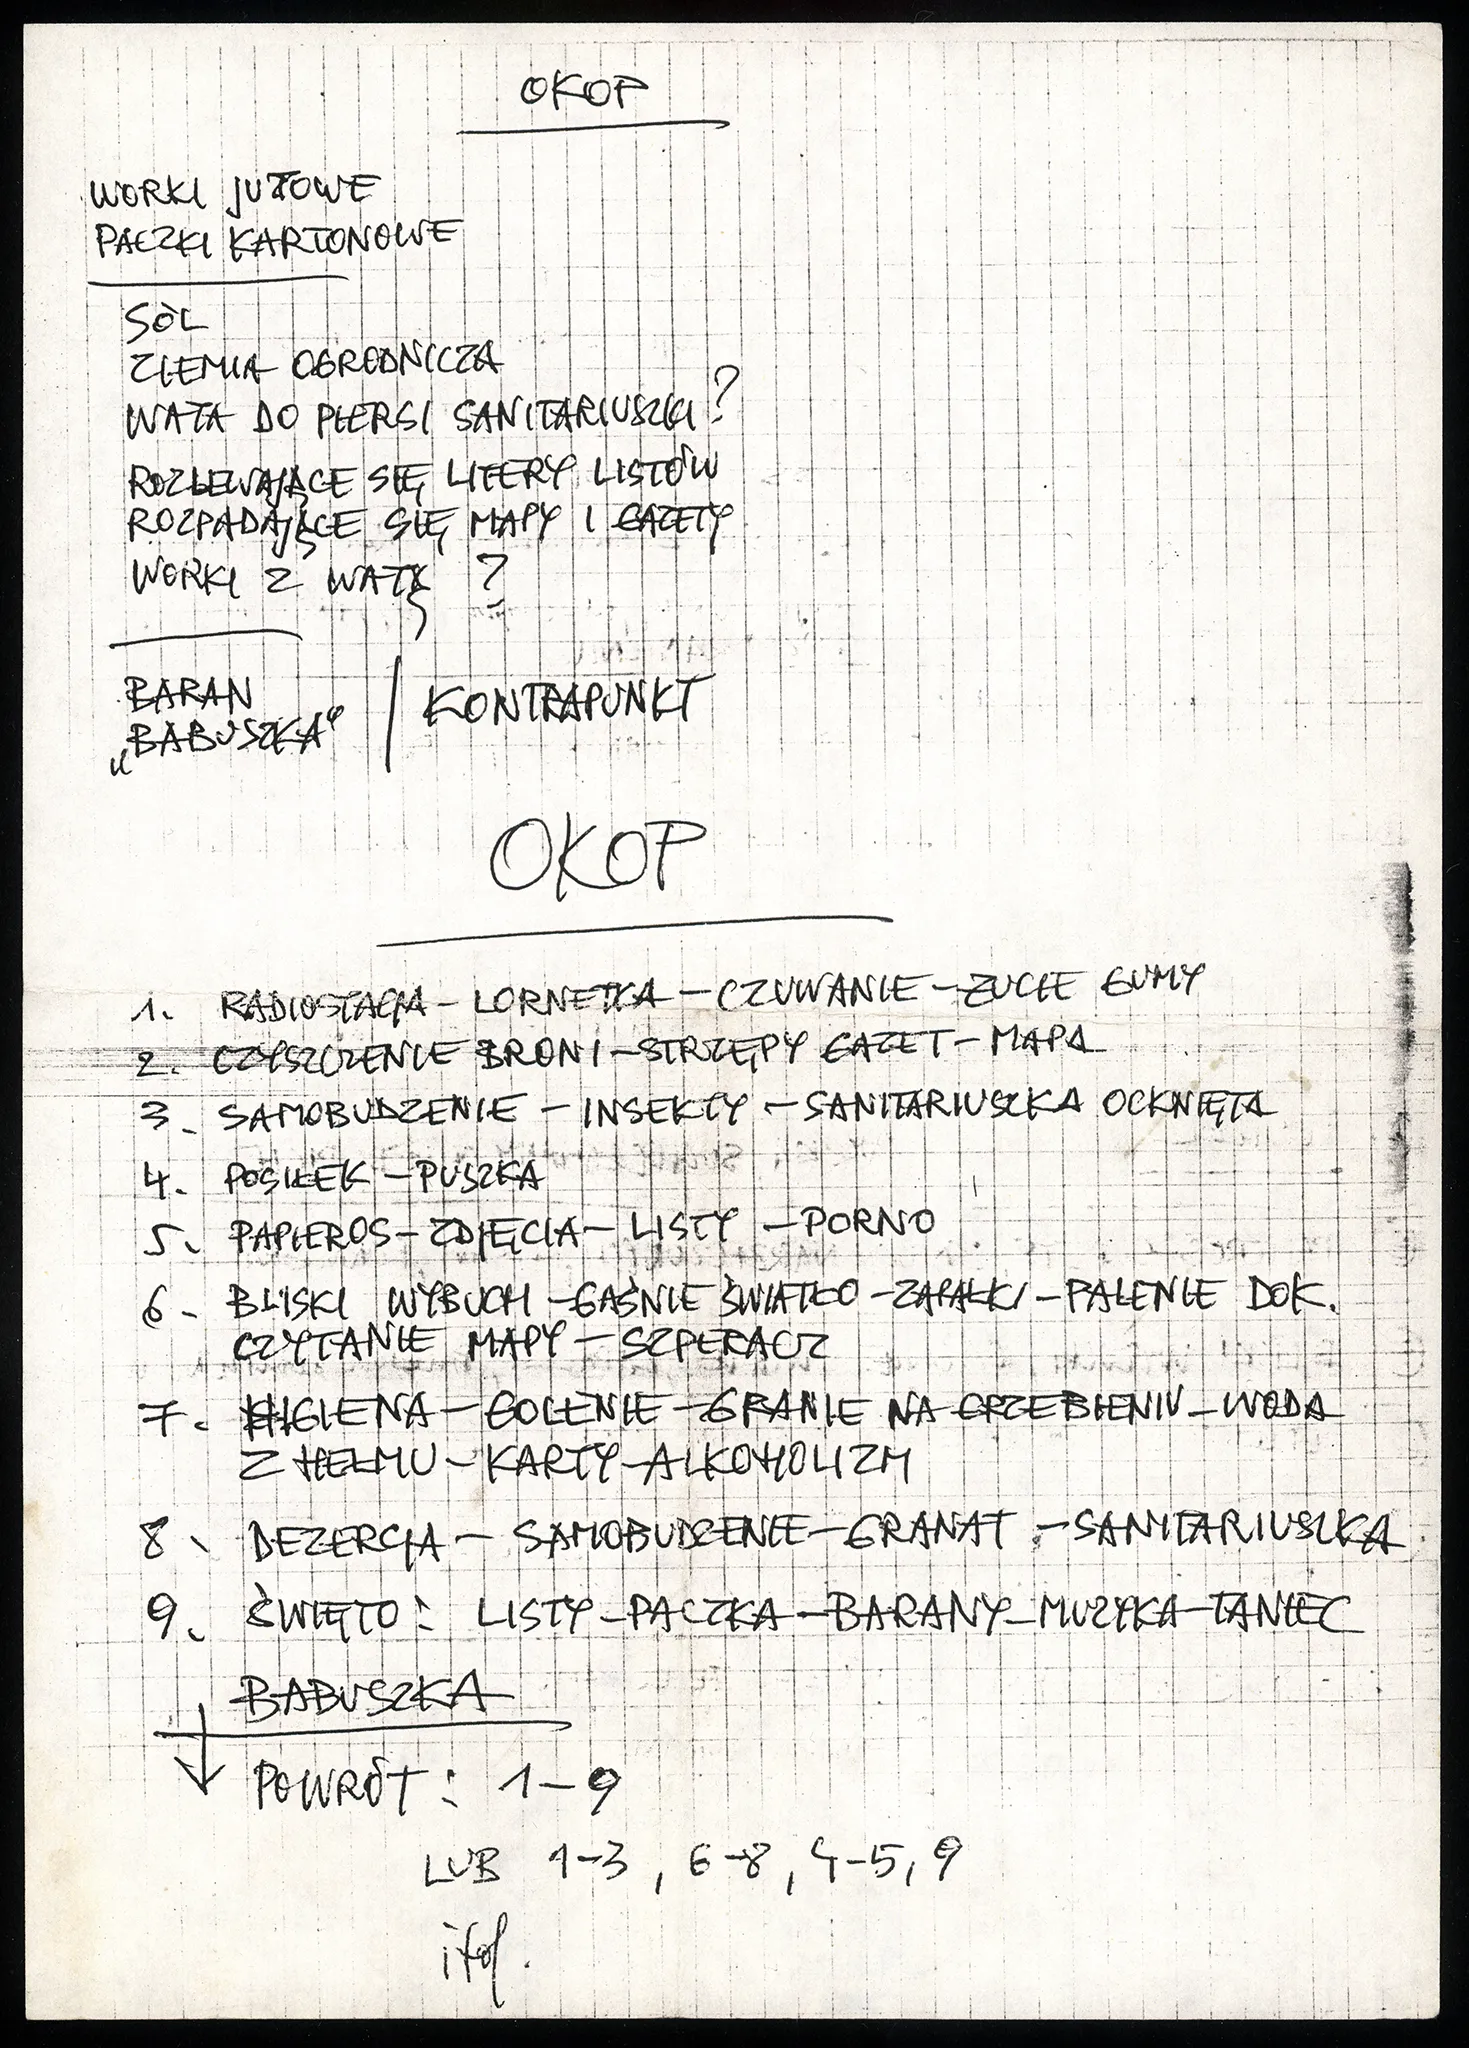 OKOP
WORKI JUTOWE
PACZKI KARTONOWE
SÓL
ZIEMIA OGRODNICZA
WATA DO PIERSI SANITARIUSZKI?
ROZLEWAJĄCE SIĘ LITERY LISTÓW
ROZPADAJĄCE SIĘ MAPY I GAZETY
WORKI Z WATĄ ?
BARAN
„BABUSZKA” / KONTRAPUNKT
OKOP
1. RADIOSTACJA – LORNETKA – CZUWANIE – ŻUCIE GUMY
2. CZYSZCZENIE BRONI – STRZĘPY GAZET – MAPA
3. SAMOBUDZENIE – INSEKTY – SANITARIUSZKA OCKNIĘTA
4. POSIŁEK – PUSZKA
5. PAPIEROS – ZDJĘCIA – LISTY – PORNO
6. BLISKI WYBUCH – GAŚNIE ŚWIATŁO – ZAPAŁKI – PALENIE DOK.
CZYTANIE MAPY – SZPERACZ
7. HIGIENA – GOLENIE – GRANIE NA GRZEBIENIU – WODA
Z HEŁMU – KARTY – ALKOHOLIZM
8. DEZERCJA – SAMOBUDZENIE – GRANAT – SANITARIUSZKA
9. ŚWIĘTO: LISTY – PACZKA – BARANY – MUZYKA – TANIEC
BABUSZKA
↓ POWRÓT: 1–9
LUB 1–3, 6–8, 4–5, 9
itd.